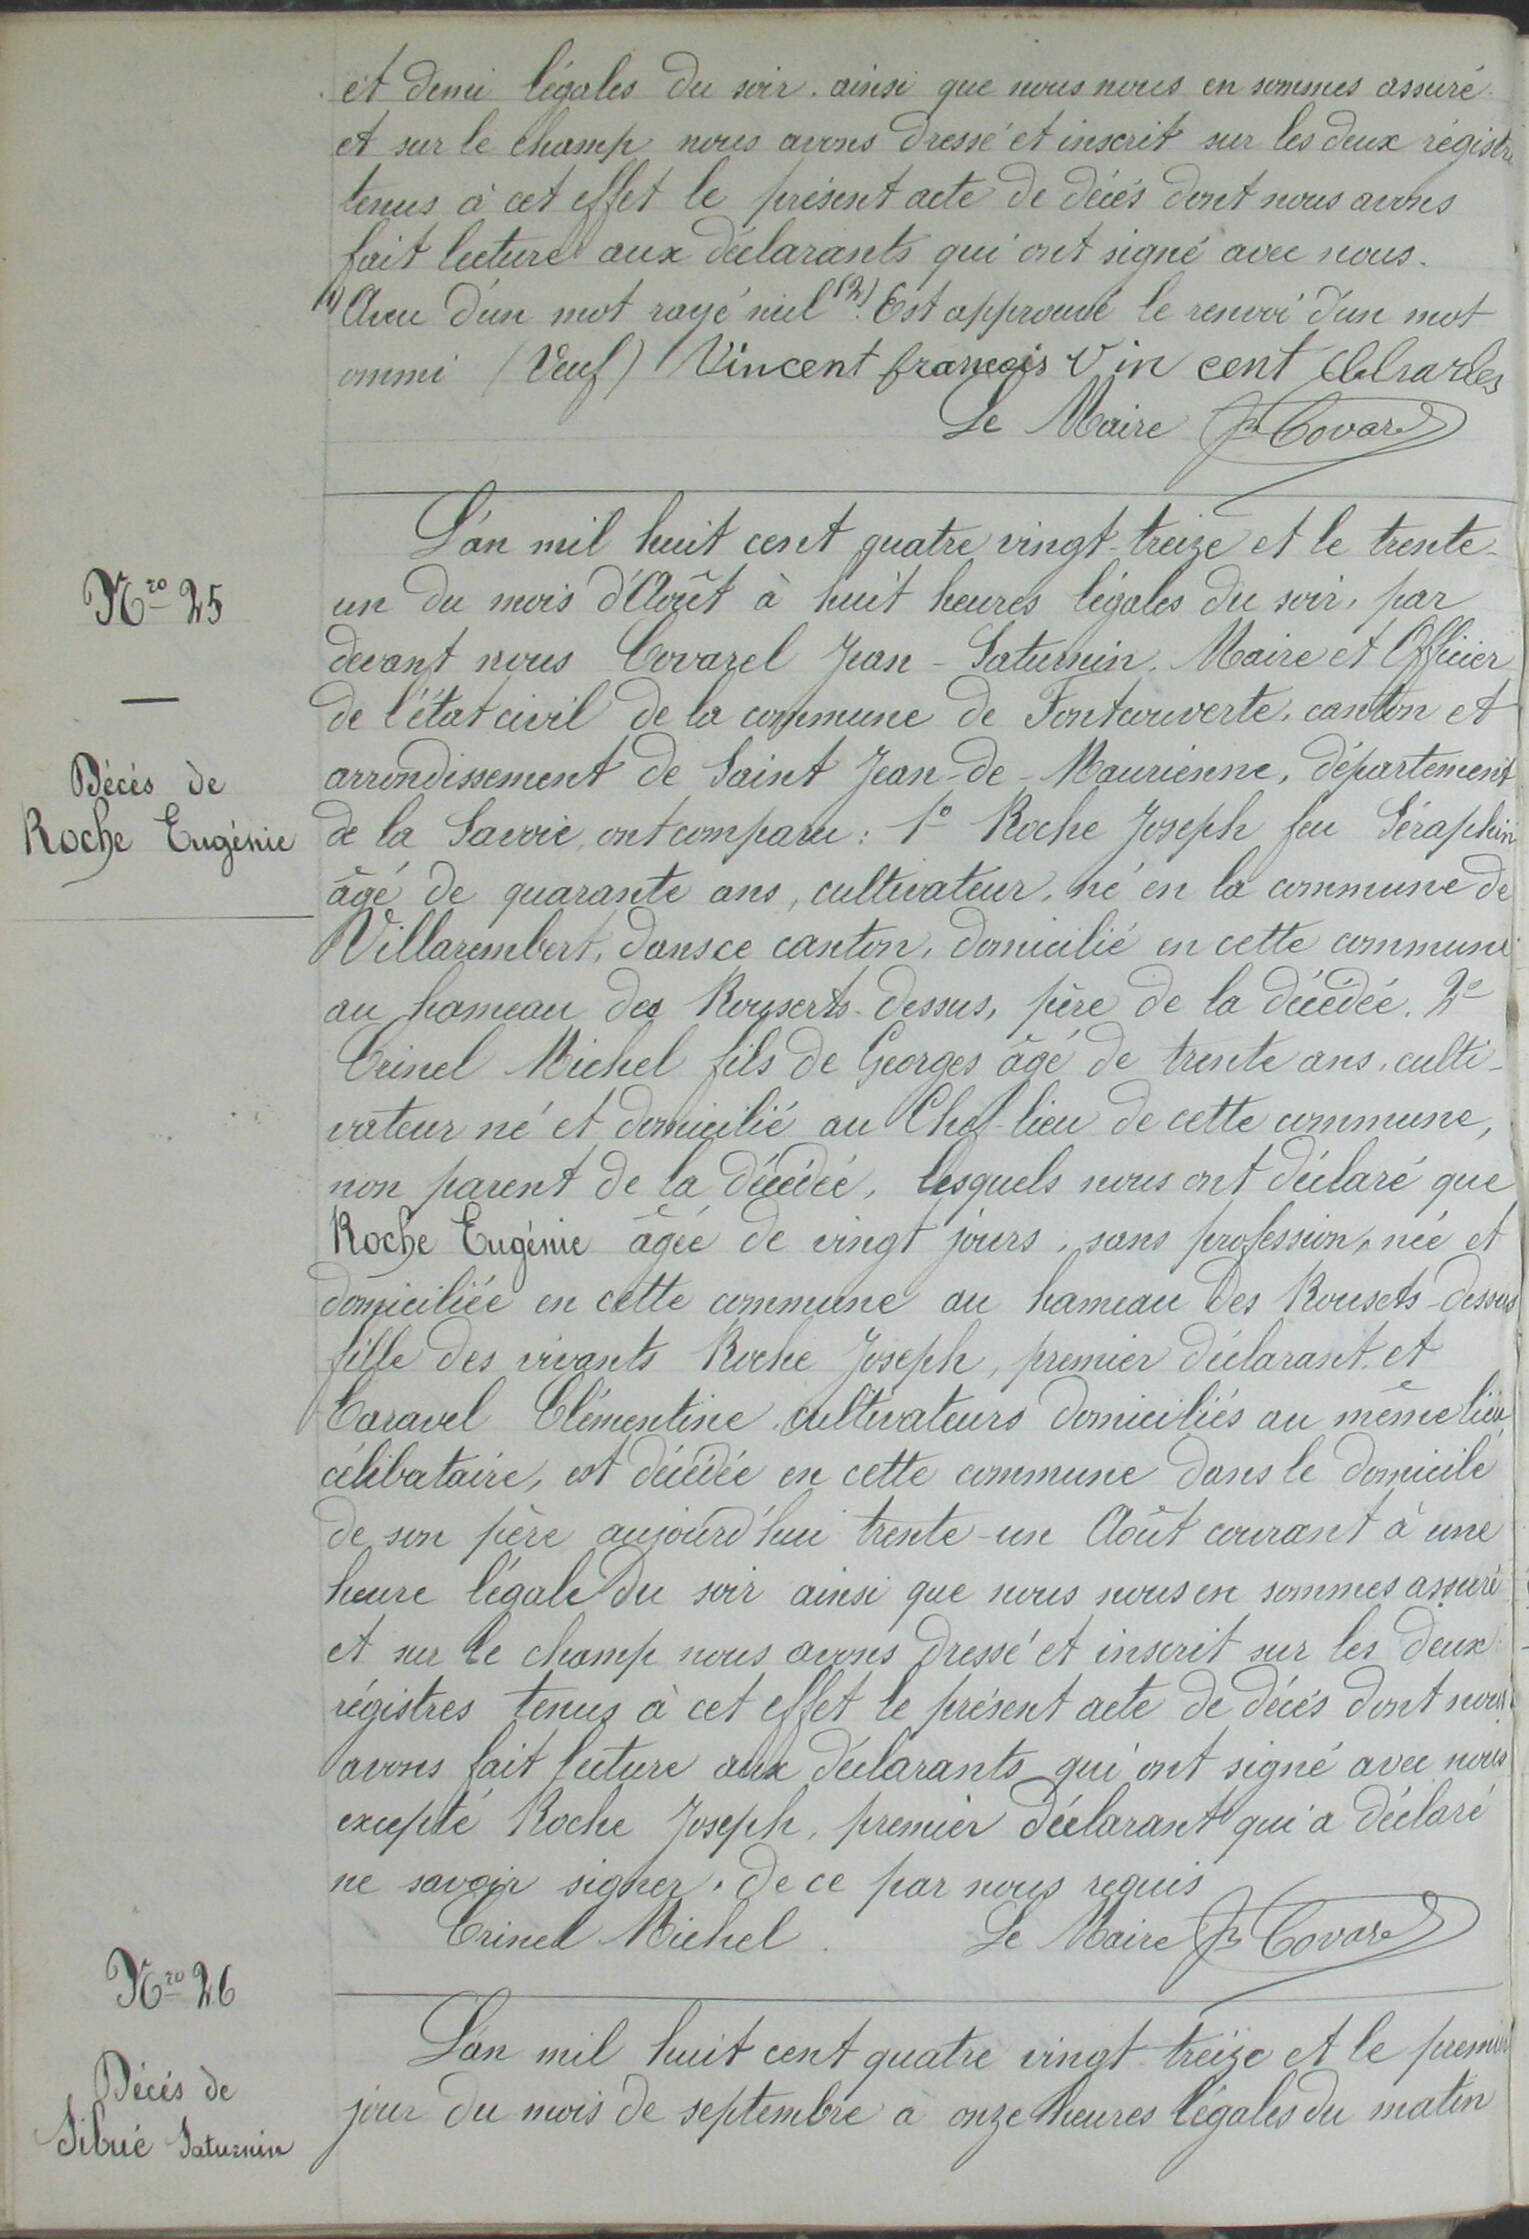 et demi légales du soir. ainsi que nous nous en sommes assuré.
et sur le champ nous avons dressé et inscrit sur les deux régistre
tenus à cet effet le présent acte de décès dont nous avons
fait lecture aux déclarants qui ont signé avec nous.
(1) Aveu d'un mot rayé nul (2). Est approuvé le renvoi d'un mot
ommi (Veuf) Vincent françois Vin cent Charles
Le Maire Jn Covarel
Nro 25
Décès de
Roche Eugénie
L'an mil huit cent quatre vingt-treize et le trente-
un du mois d'Août à huit heures légales du soir, par
devant nous Covarel Jean-Saturnin. Maire et Officier
de l'état civil de la commune de Fontcouverte, canton et
arrondissement de Saint Jean-de-Maurienne, département
de la Savoie, ont comparu : 1º Roche Joseph feu Séraphin
âgé de quarante ans, cultivateur, né en la commune de
Villarembert, dans ce canton, domicilié en cette commune
au hameau des Rousets-dessus, père de la décédée. 2º
Crinel Michel fils de Georges âgé de trente ans, culti-
vateur né et domicilié au Chef-lieu de cette commune,
non parent de la décédée, lesquels nous ont déclaré que
Roche Eugénie âgée de vingt jours, sans profession, née et
domiciliée en cette commune au hameau des Rousets-dessus
fille des vivants Roche Joseph, premier déclarant, et
Taravel Clémentine cultivateurs domiciliés au même lieu
célibataire, est décédée en cette commune dans le domicile
de son père aujourd'hui trente-un Août courant à une
heure légale du soir ainsi que nous nous en sommes assuré
et sur le champ nous avons dressé et inscrit sur les deux
régistres tenus à cet effet le présent acte de décès dont nous
avons fait lecture aux déclarants qui ont signé avec nous
excepté Roche Joseph, premier déclarant qui a déclaré
ne savoir signer, de ce par nous requis
Crinel Michel. Le Maire Jn Covarel
Nro 26
Décès de
Sibué Saturnin
L'an mil huit cent quatre vingt treize et le premier
jour du mois de septembre à onze heures légales du matin